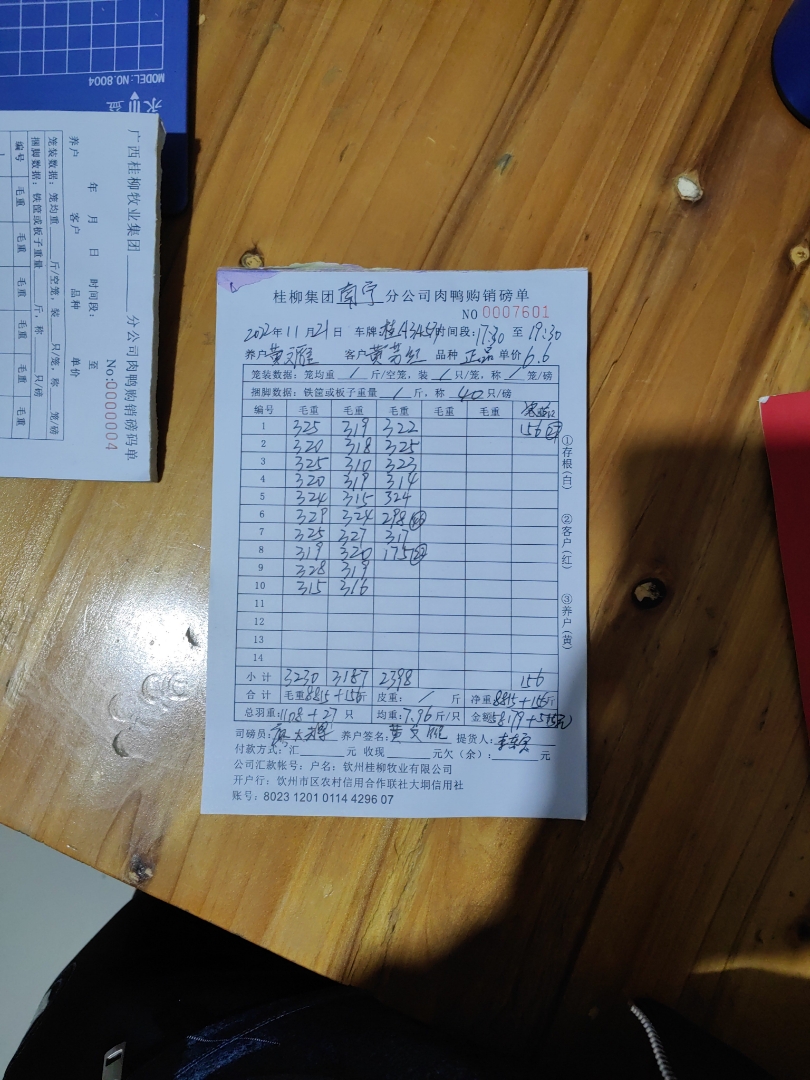 MODEL:NO.8004
广西桂柳牧业集团______分公司肉鸭购销磅码单
No:0000004
年 月 日 时间段: 至
养户 客户 品种 单价
笼装数据:笼均重____斤/空笼,装____只/笼,称____笼/磅
捆脚数据:铁筐或板子重量____斤,称____只/磅
编号 毛重 毛重 毛重 毛重 毛重
1
桂柳集团南宁分公司肉鸭购销磅单
NO 0007601
2022年11月21日 车牌 时间段:17:30 至 19:30
养户 客户 品种 正品 单价 6.6
笼装数据:笼均重 / 斤/空笼,装 / 只/笼,称 / 笼/磅
捆脚数据:铁筐或板子重量 / 斤,称 40 只/磅
编号 毛重 毛重 毛重 毛重 毛重
1 325 319 322 156 27
2 320 318 325
3 325 310 323
4 320 319 314
5 324 315 324
6 329 324 298
7 325 327 317
8 319 320 175
9 328 319
10 315 316
11
12
13
14
小计 3230 3187 2398 156
合计 毛重:8815+156斤 皮重: / 斤 净重:8815+156斤
总羽重:1108+27 只 均重:7.96斤/只 金额:58179+515元
司磅员: 养户签名: 提货人:
付款方式:汇______元 收现______元欠(余):______元
公司汇款帐号:户名:钦州桂柳牧业有限公司
开户行:钦州市区农村信用合作联社大垌信用社
账号:8023 1201 0114 4296 07
①存根(白)
②客户(红)
③养户(黄)